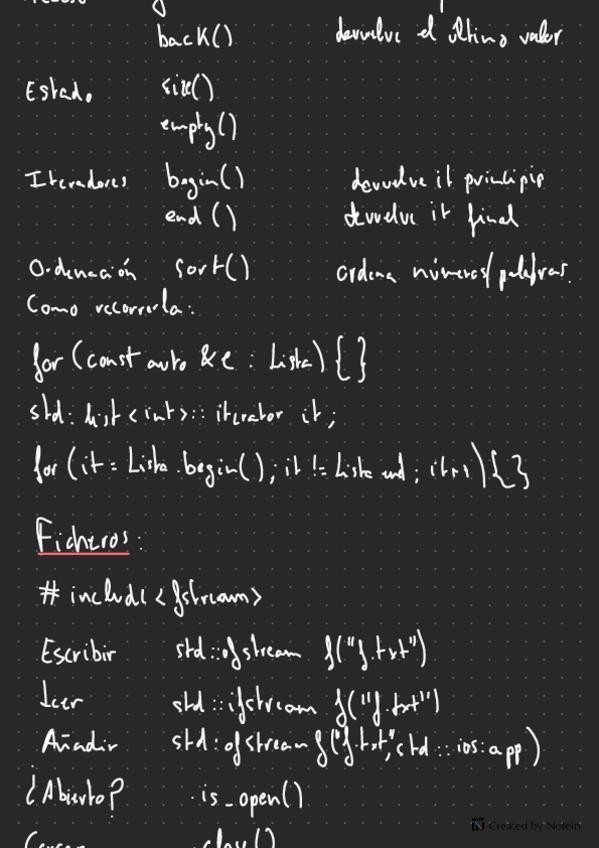 back() devuelve el último valor
Estado size()
empty()
Iteradores begin() devuelve it principio
end () devuelve it final
Ordenación sort() ordena números/palabras.
Como recorrerla:
for (const auto &e : Lista) { }
std: list <int>:: iterator it;
for (it = Lista.begin(); it != Lista end ; it++) { }
Ficheros:
# include <fstream>
Escribir std::ofstream f("f.txt")
Leer std::ifstream f("f.txt")
Añadir std:ofstream f("f.txt",std::ios:app)
¿Abierto? .is_open()
Created by Notein